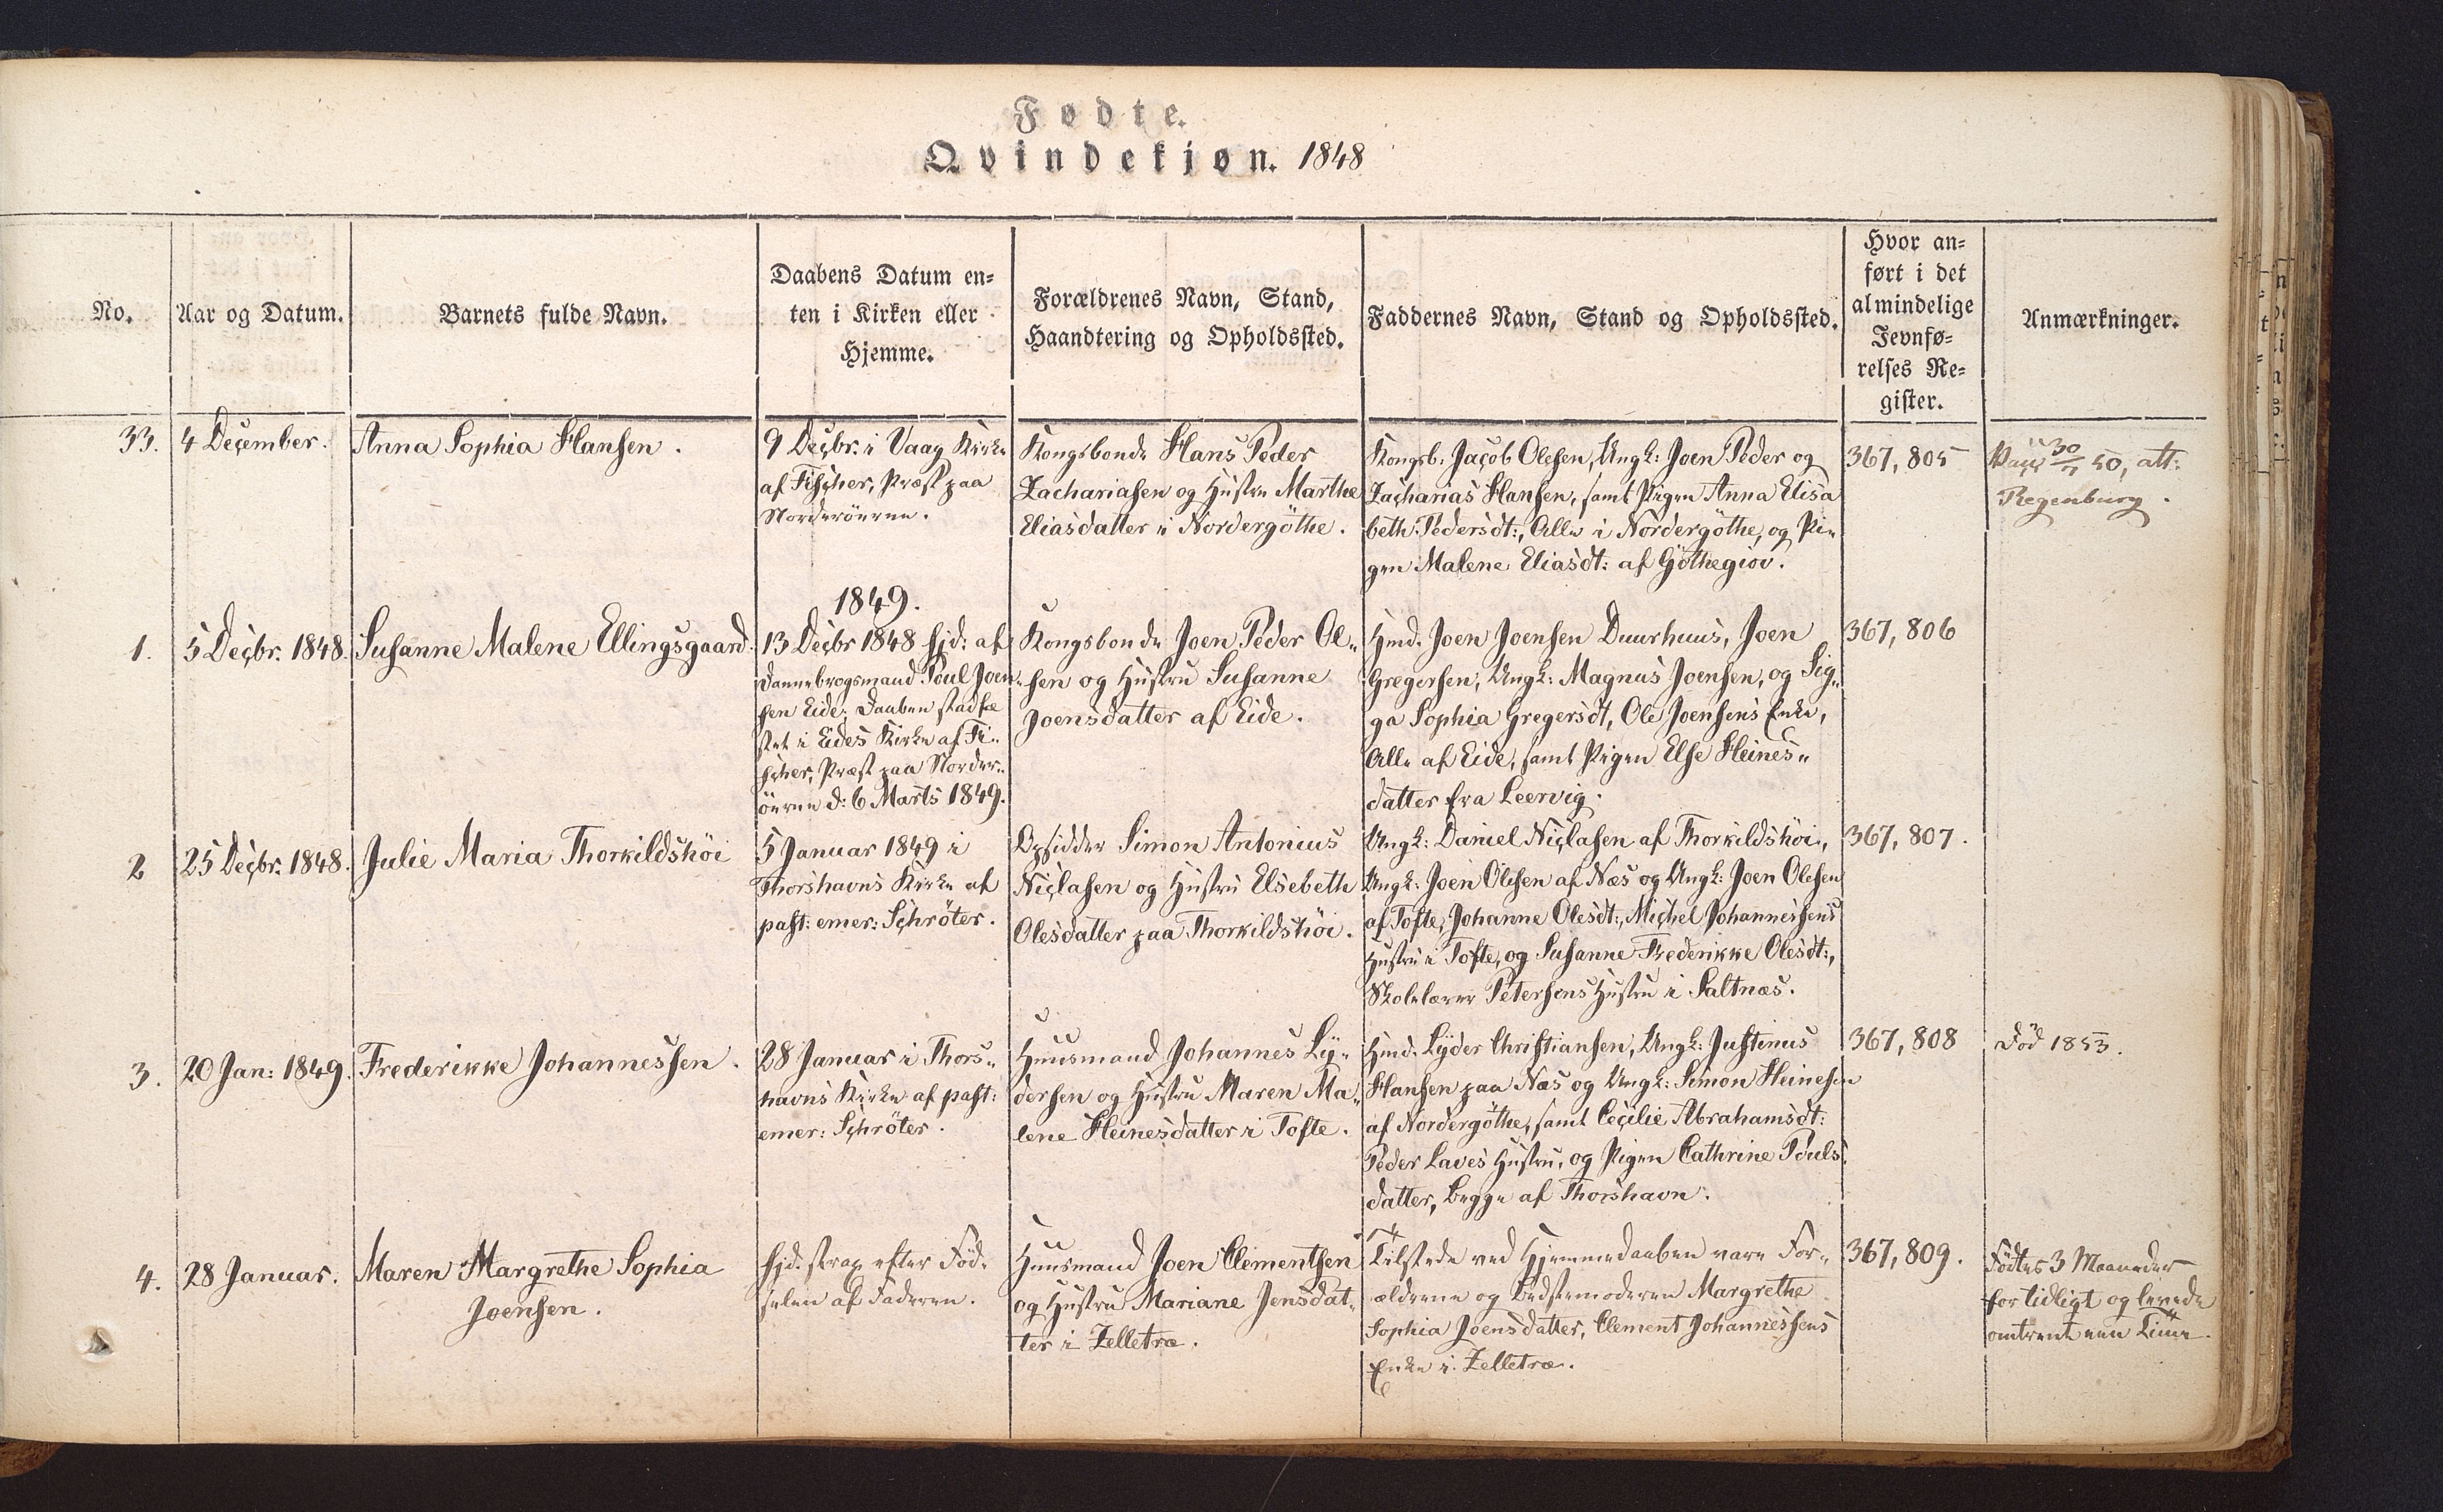 Fødte.
Qvindekjøn. 1848
No.
Aar og Datum.
Barnets fulde Navn.
Daabens Datum en-
ten i Kirken eller
Hjemme.
Forældrenes Navn, Stand,
Haandtering og Opholdssted.
Faddernes Navn, Stand og Opholdssted.
Hvor an-
ført i det
almindelige
Jevnfø-
relses Re-
gister.
Anmærkninger.
33.
4 December.
Anna Sophia Hansen.
9 Decbr. i Vaag Kirke
af Fischer, Præst paa
Norderöerne.
Kongsbonde Hans Peder
Zachariasen og Hustru Marthe
Eliasdatter i Nordergöthe.
Kongsb. Jacob Olesen, Ungk: Joen Peder og
Zacharias Hansen, samt Pigen Anna Elisa
beth Pedersdt:, Alle i Nordergöthe, og Pi-
gen Malene Eliasdt: af Göthegiov.
367, 805
Vacc 30/7 50, att:
Regenburg.
1849.
1.
5 Decbr. 1848.
Susanne Malene Ellingsgaard.
13 Decbr 1848 hjd: af
Dannebrogsmand Poul Joen-
sen Eide; Daaben stadfæ
stet i Eides Kirke af Fi-
scher, Præst paa Norder-
öerne d: 6 Marts 1849.
Kongsbonde Joen Peder Ol-
sen og Hustru Susanne
Joensdatter af Eide.
Hmd. Joen Joensen Duurhuus, Joen
Gregersen, Ungk: Magnus Joensen, og Sig-
ga Sophia Gregersdt, Ole Joensens Enke,
Alle af Eide, samt Pigen Else Heines-
datter fra Leervig.
367, 806
2
25 Decbr. 1848.
Julie Maria Thorkildshöi
5 Januar 1849 i
Thorshavns Kirke af
past: emer: Schröter.
Opsidder Simon Antonius
Niclasen og Hustru Elsebeth
Olesdatter paa Thorkildshöi.
Ungk: Daniel Niclasen af Thorkildshöi,
Ungk: Joen Olesen af Næs og Ungk: Joen Olesen
af Tofte, Johanne Olesdt:, Michel Johannessens
Hustru i Tofte, og Susanne Frederikke Olesdt:,
Skolelærer Petersens Hustru i Saltnæs.
367, 807.
3.
20 Jan: 1849.
Frederikke Johannessen.
28 Januar i Thors-
havns Kirke af past:
emer: Schröter.
Huusmand Johannes Ly-
dersen og Hustru Maren Ma-
lene Heinesdatter i Tofte.
Hmd. Lyder Christiansen, Ungk: Justinus
Hansen paa Næs og Ungk: Simon Heinesen
af Nordergöthe, samt Cecilie Abrahamsdt:
Peder Laves Hustru, og Pigen Cathrine Pouls-
datter, begge af Thorshavn.
367, 808
Död 1853.
4.
28 Januar.
Maren Margrethe Sophia
Joensen.
hjd. strax efter Föd-
selen af Faderen.
Huusmand Joen Clementsen
og Hustru Mariane Jensdat-
ter i Zelletræ.
Tilstede ved Hjemmedaaben vare For-
ældrene og Bedstemoderen Margrethe
Sophia Joensdatter, Clement Johannessens
Enke i Zelletræ.
367, 809.
Födtes 3 Maaneder
for tidligt og levede
omtrent een Time.